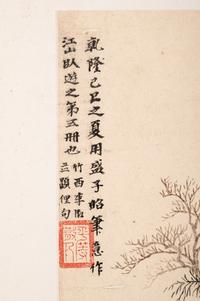 乾隆己丑之夏用盛子昭筆意作
江山臥遊之第五冊也
竹西李
並題俚句